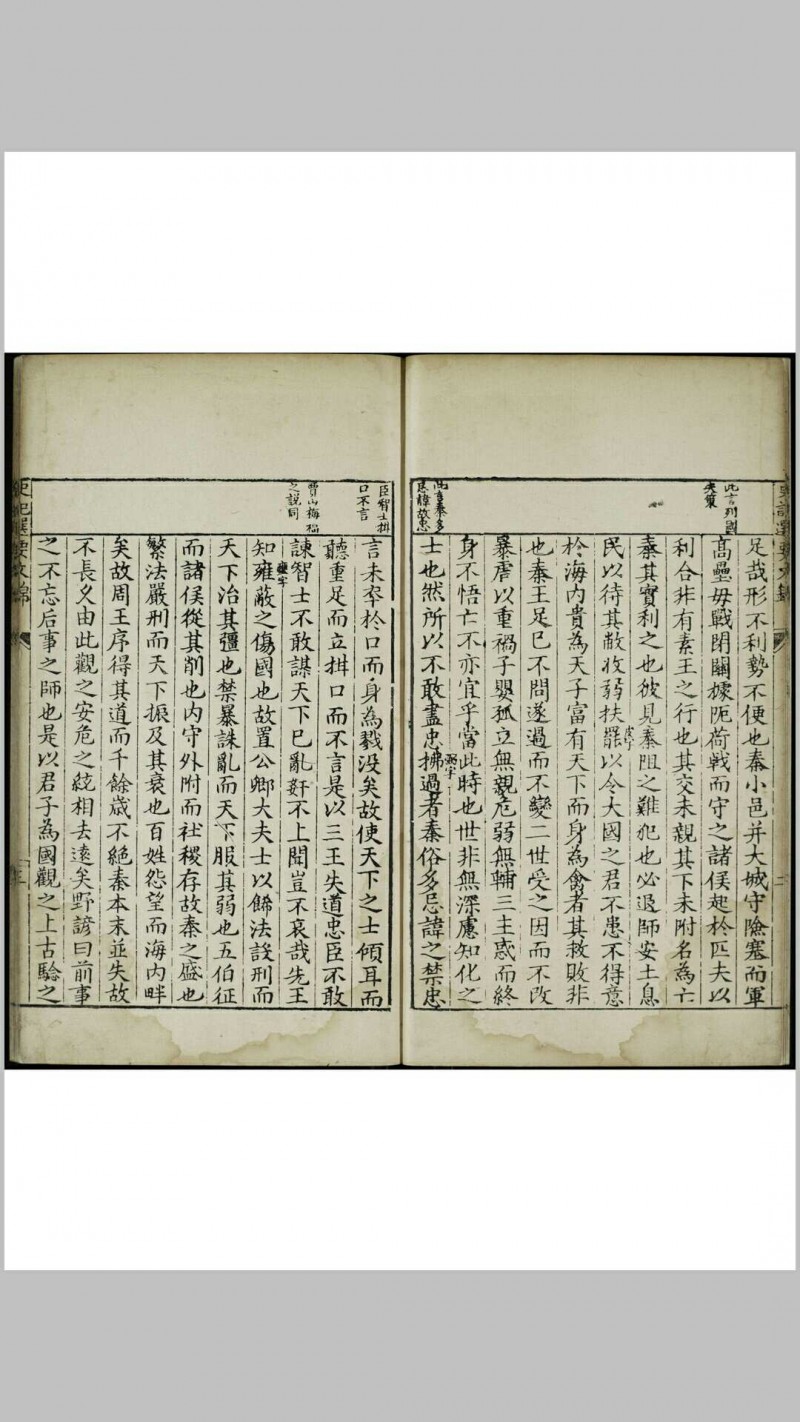 此言列國
失策
此言秦多
忌諱故忠
足哉形不利勢不便也秦小邑并大城守險塞而軍
高壘毋戰閉關據阨荷戟而守之諸侯起於匹夫以
利合非有素王之行也其交未親其下未附名為亡
秦其實利之也彼見秦阻之難犯也必退師安土息
民以待其敝收弱扶罷以令大國之君不患不得意
於海内貴為天子富有天下而身為禽者其救敗非
也秦王足已不問遂過而不變二世受之因而不改
暴虐以重禍子嬰孤立無親危弱無輔三主惑而終
身不悟亡不亦宜乎當此時也世非無深慮知化之
士也然所以不敢盡忠拂過者秦俗多忌諱之禁忠
臣智士拑
口不言
賈山梅福
之說同
言未卒於口而身為戮没矣故使天下之士傾耳而
聽重足而立拑口而不言是以三王失道忠臣不敢
諫智士不敢謀天下已亂奸不上聞豈不哀哉先王
知雍蔽之傷國也故置公卿大夫士以飾法設刑而
天下治其彊也禁暴誅亂而天下服其弱也五伯征
而諸侯從其削也内守外附而社稷存故秦之盛也
繁法嚴刑而天下振及其衰也百姓怨望而海内畔
矣故周王序得其道而千餘歳不絶秦本末並失故
不長久由此觀之安危之統相去遠矣野諺曰前事
之不忘后事之師也是以君子為國觀之上古驗之